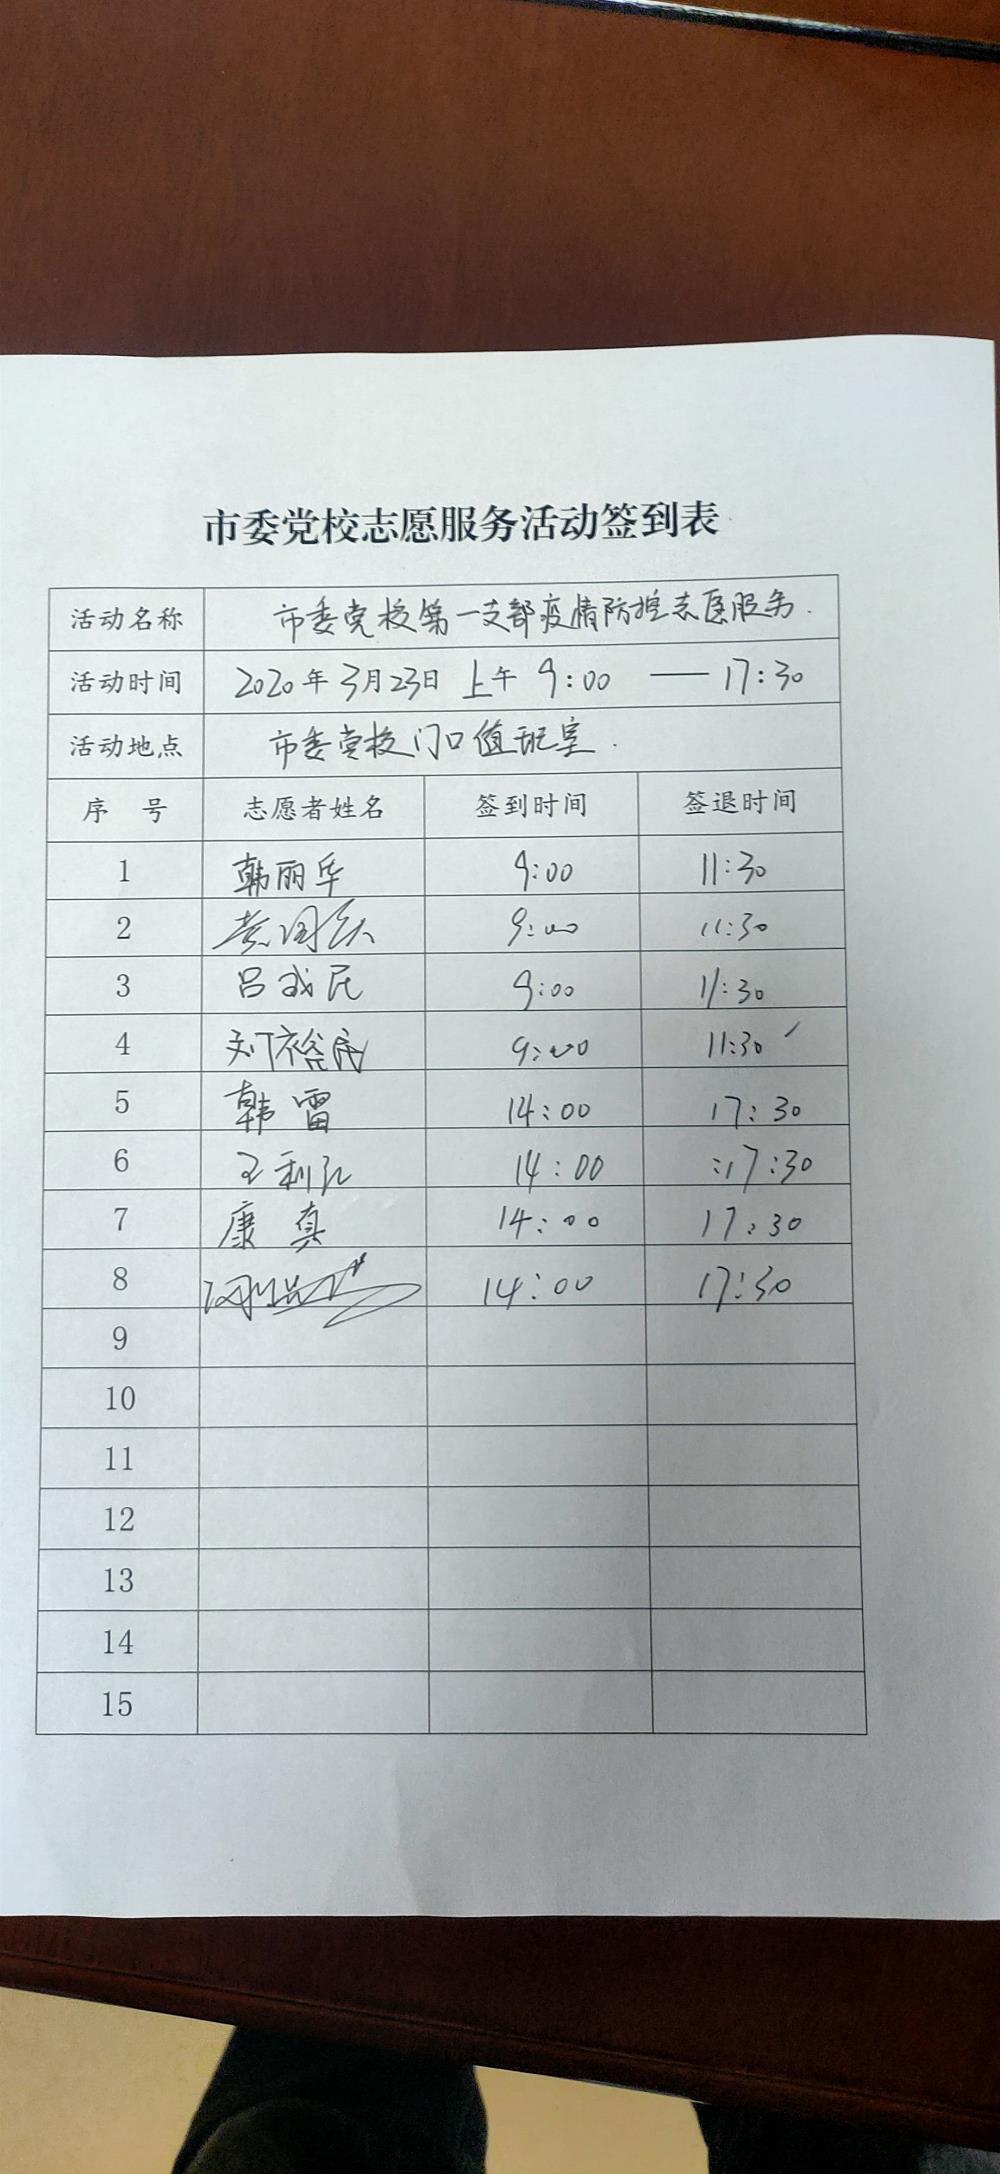 市委党校志愿服务活动签到表
活动名称 市委党校第一支部疫情防控志愿服务.
活动时间 2020年3月23日 上午 9:00 —— 17:30
活动地点 市委党校门口值班室.
序 号 志愿者姓名 签到时间 签退时间
1 韩丽华 9:00 11:30
2 9:00 11:30
3 吕成民 9:00 11:30
4 刘裕民 9:00 11:30
5 韩雷 14:00 17:30
6 王利 14:00 :17:30
7 康真 14:00 17:30
8 14:00 17:30
9
10
11
12
13
14
15